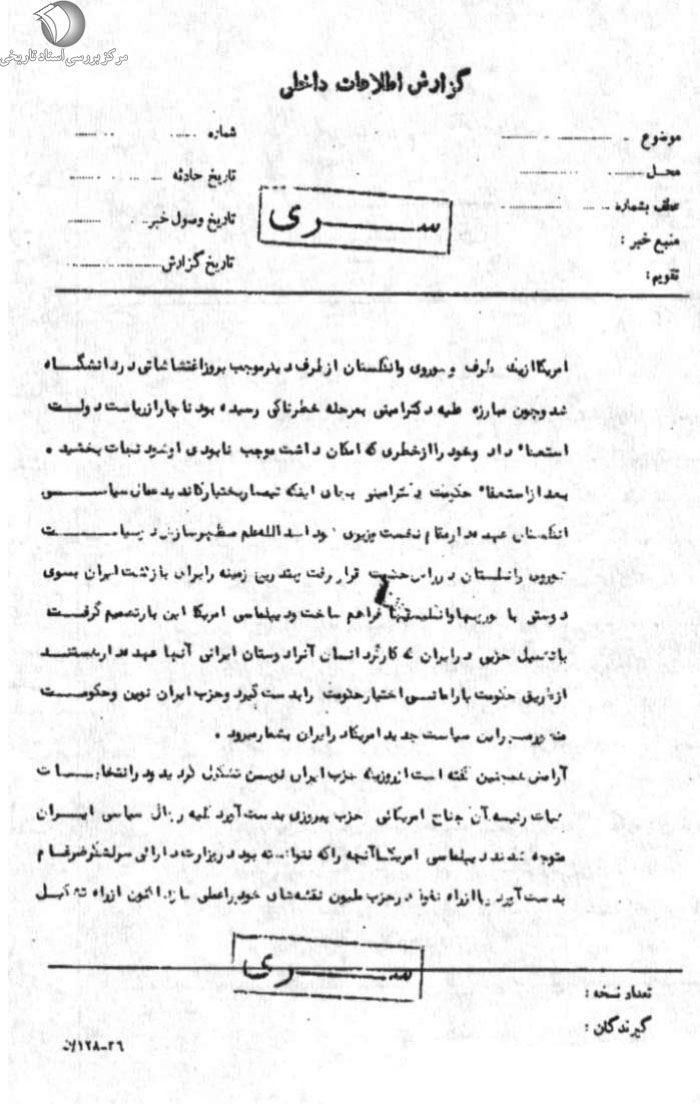 مرکز بررسی اسناد تاریخی
گزارش اطلاعات داخلی
موضوع
محل
عطف بشماره
منبع خبر :
تقویم :
شماره
تاریخ حادثه
تاریخ وصول خبر
تاریخ گزارش
سری
امریکا ازیک طرف و شوروی وانگلستان از طرف دیگر موجب بروز اغتشاشاتی در دانشگاه
شد و چون مبارزه علیه دکتر امینی بمرحله خطرناکی رسیده بود ناچار از ریاست دولت
استعفاء داد و خود را از خطری که امکان داشت موجب نابودی او شود نجات بخشید .
بعد از استعفاء حکومت دکتر امینی بجای اینکه تیمسار بختیار کاندیدهای سیاسی
انگلستان عهده دار مقام نخست وزیری شود اسدالله علم مظهر سازش د سیاست
شوروی وانگلستان در راس حکومت قرار رفت بهترین زمینه را برای بازگشت ایران بسوی
دوستی با شوریها وانگلیسیها فراهم ساخت و دیپلماسی امریکا این بار تصمیم گرفت
با تشکیل حزبی در ایران که کارگردانان آنرا دوستان ایرانی آنها عهده دار هستند
از طریق حکومت پارلمانی اختیار حکومت را بدست گیرد و حزب ایران نوین و حکومت
منصور مسیر این سیاست جدید امریکا در ایران بشمار میرود .
آرامش همچنین گفته است از روزیکه حزب ایران نوین تشکیل گردید و در انتخابات
هیات رئیسه آن جناح امریکائی حزب پیروزی بدست آورد کلیه رجال سیاسی ایران
متوجه شدند دیپلماسی امریکا آنچه را که نتوانسته بود در وزارت دارائی سرلشگر ضرغام
بدست آورد یا از راه نفوذ در حزب ملیون نقشه‌های خود را عملی سازد اکنون از راه تشکیل
سری
تعداد نسخه :
گیرندگان :
۲۶-۱۲۸